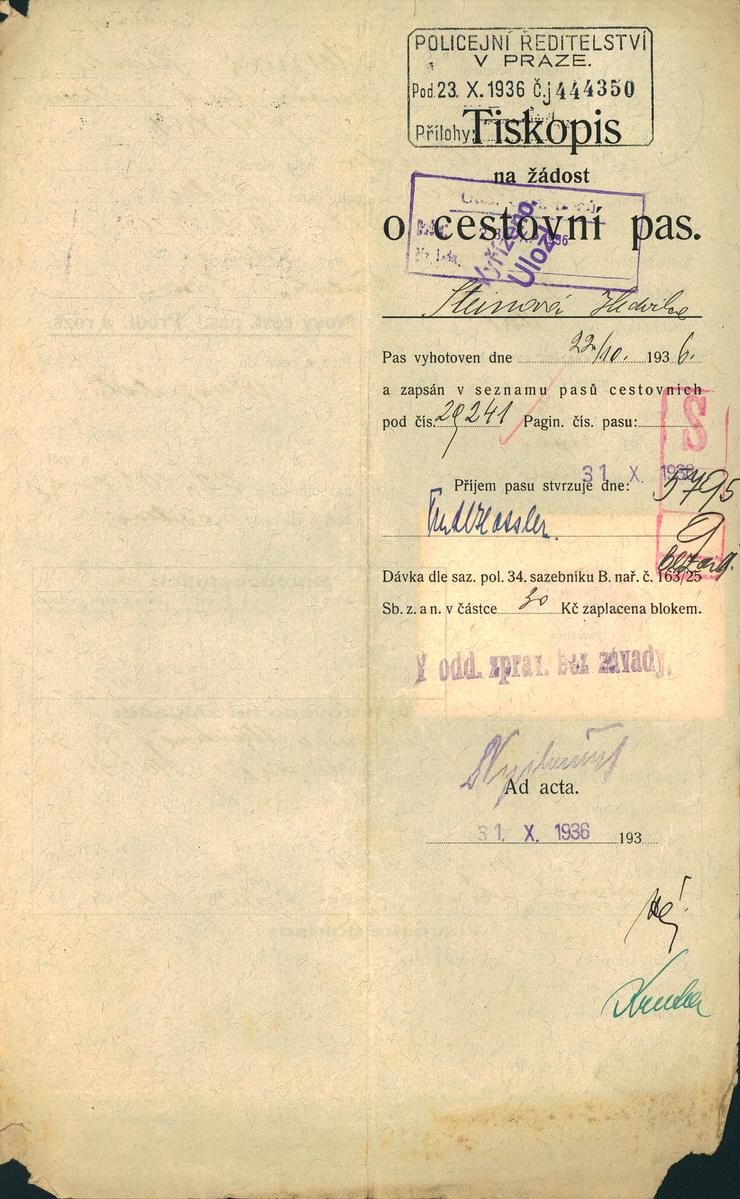 POLICEJNÍ ŘEDITELSTVÍ
V PRAZE.
Pod. 23. X. 1936 č.j 444350
Přílohy:
Tiskopis
na žádost
Vyřízeno.
Uložit
o cestovní pas.
Steinová Hedvika
Pas vyhotoven dne 22/10. 1936.
a zapsán v seznamu pasů cestovních
pod čís. 29241 Pagin. čís. pasu:
S
31 X. 1936
Příjem pasu stvrzuje dne:
5795
9
Dávka dle saz. pol. 34. sazebníku B. nař. č. 163/25
Sb. z. a n. v částce 30 Kč zaplacena blokem.
V odd. zprav. bez závady.
Ad acta.
31. X. 1936 193